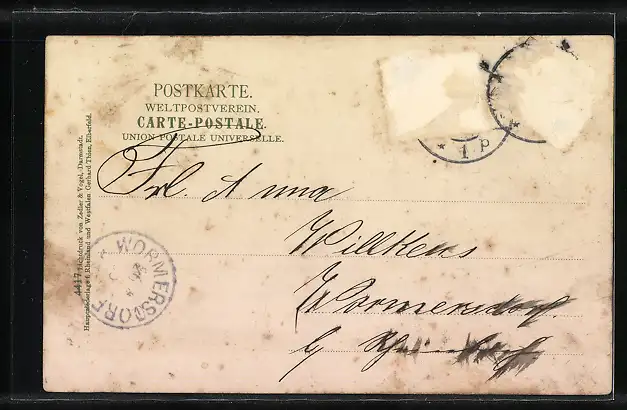 POSTKARTE.
WELTPOSTVEREIN.
CARTE-POSTALE.
UNION POSTALE UNIVERSELLE.
Frl. Anna
Willkens
Wormersdorf.
b/
WORMERSDORF
* 1 P
4417 Lichtdruck von Zedler & Vogel, Darmstadt.
Hauptniederlage f. Rheinland und Westfalen Gerhard Thien, Elberfeld.